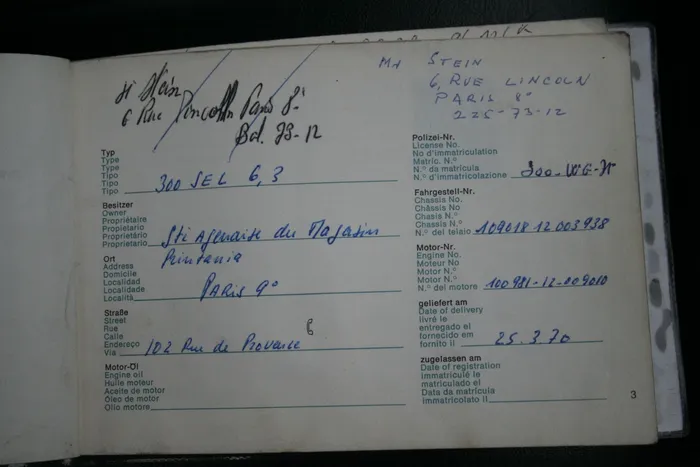 Mr STEIN
6, RUE LINCOLN
PARIS 8°
225-73-12
Mr Stein
6 Rue Lincoln Paris 8°
Bal. 73-12
Typ
Type
Type
Tipo
Tipo
Tipo 300 SEL 6,3
Besitzer
Owner
Propriétaire
Propietario
Proprietário
Proprietario Sté Agenaise du Magasin
Printania
Ort
Address
Domicile
Localidad
Localidade
Località PARIS 9°
Straße
Street
Rue
Calle
Endereço
Via 102 Rue de Provence
Motor-Öl
Engine oil
Huile moteur
Aceite de motor
Óleo de motor
Olio motore
Polizei-Nr.
License No.
No d'immatriculation
Matric. N.º
N.º da matrícula
N.º d'immatricolazione
Fahrgestell-Nr.
Chassis No.
Châssis No
Chasis N.º
Chassis N.º
N.º del telaio 109018 12 003938
Motor-Nr.
Engine No.
Moteur No
Motor N.º
Motor N.º
N.º del motore 100981-12-009010
geliefert am
Date of delivery
livré le
entregado el
fornecido em
fornito il 25.3.70
zugelassen am
Date of registration
immatriculé le
matriculado el
Data da matrícula
immatricolato il
3